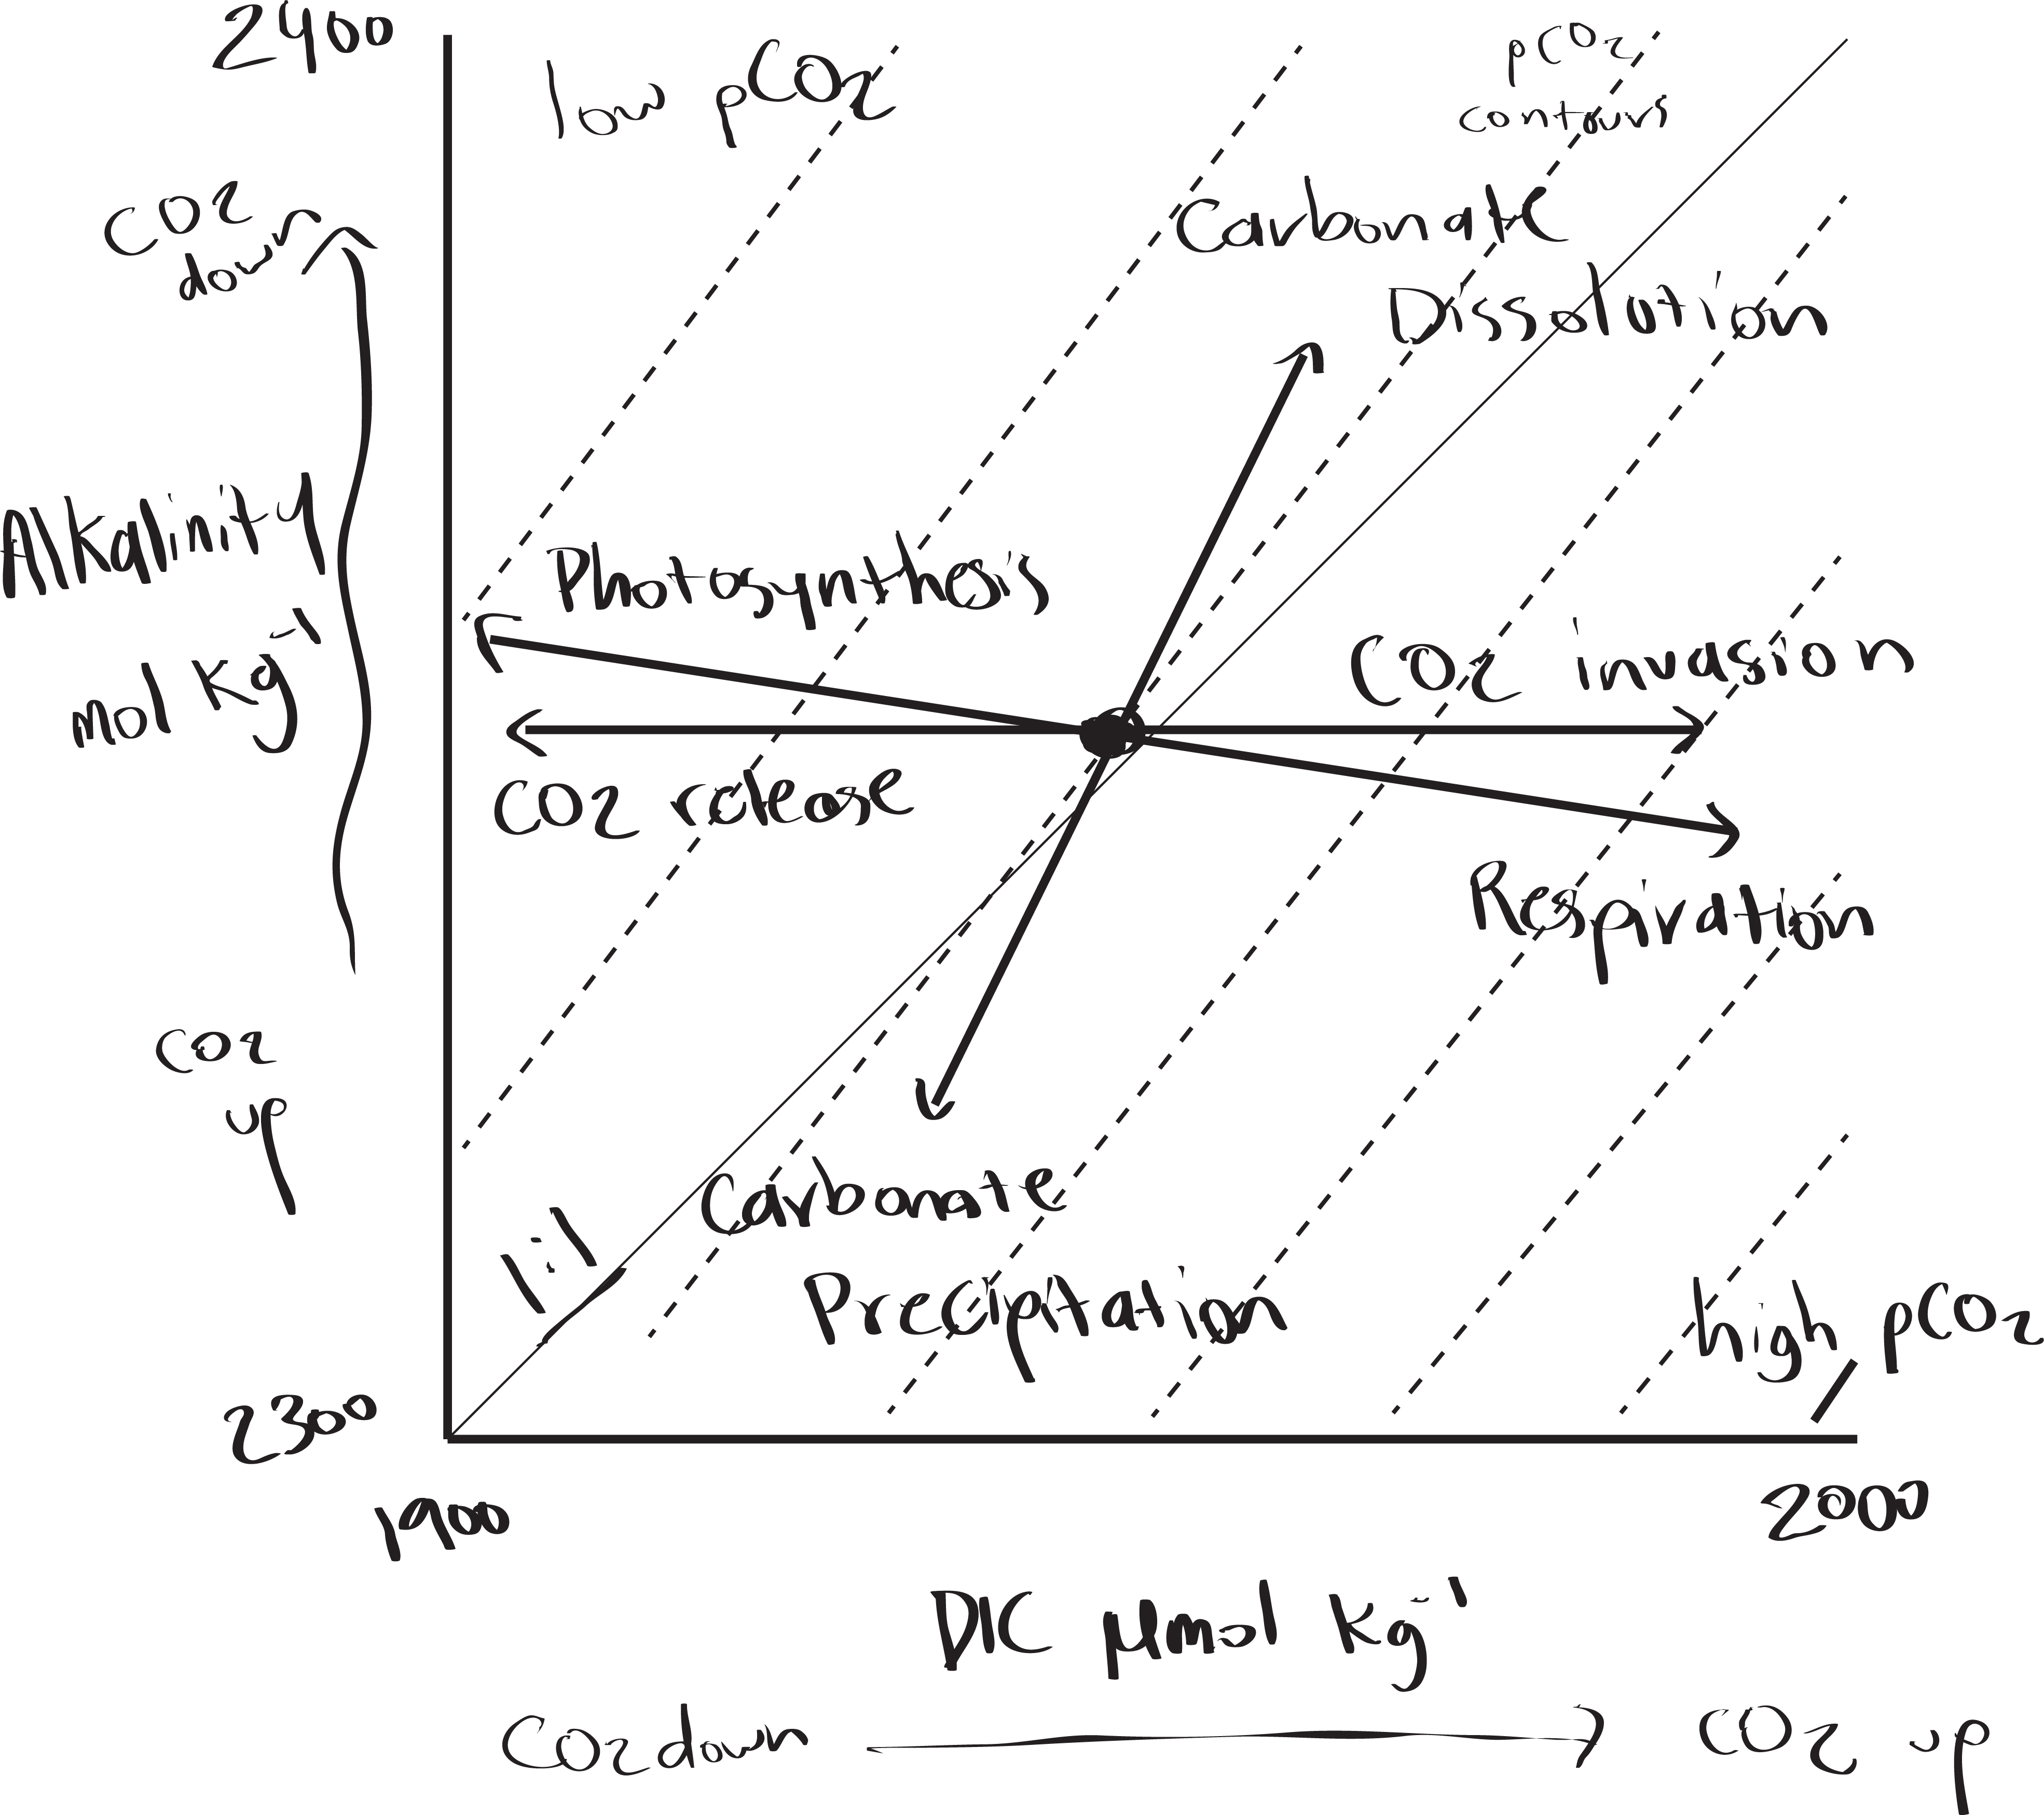 2400
low pCO2
pCO2
contours
CO2
down
Carbonate
Dissolution
Alkalinity
mol Kg-1
Photosynthesis
CO2 invasion
CO2 release
Respiration
CO2
up
Carbonate
Precipitation
1:1
high pCO2
2300
1900
2000
DIC µmol Kg-1
CO2 down
CO2 up